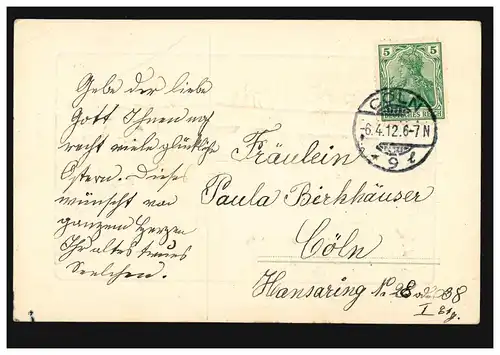 Gebe der liebe
Gott Ihnen noch
recht viele glückliche
Ostern. Dieses
wünscht von
ganzem Herzen
Ihr altes treues
Seelchen.
5 5
CÖLN
-6.4.12.6-7N
* 9 l
Fräulein
Paula Birkhäuser
Cöln
Hansaring No 28 od. 38
I Etg.